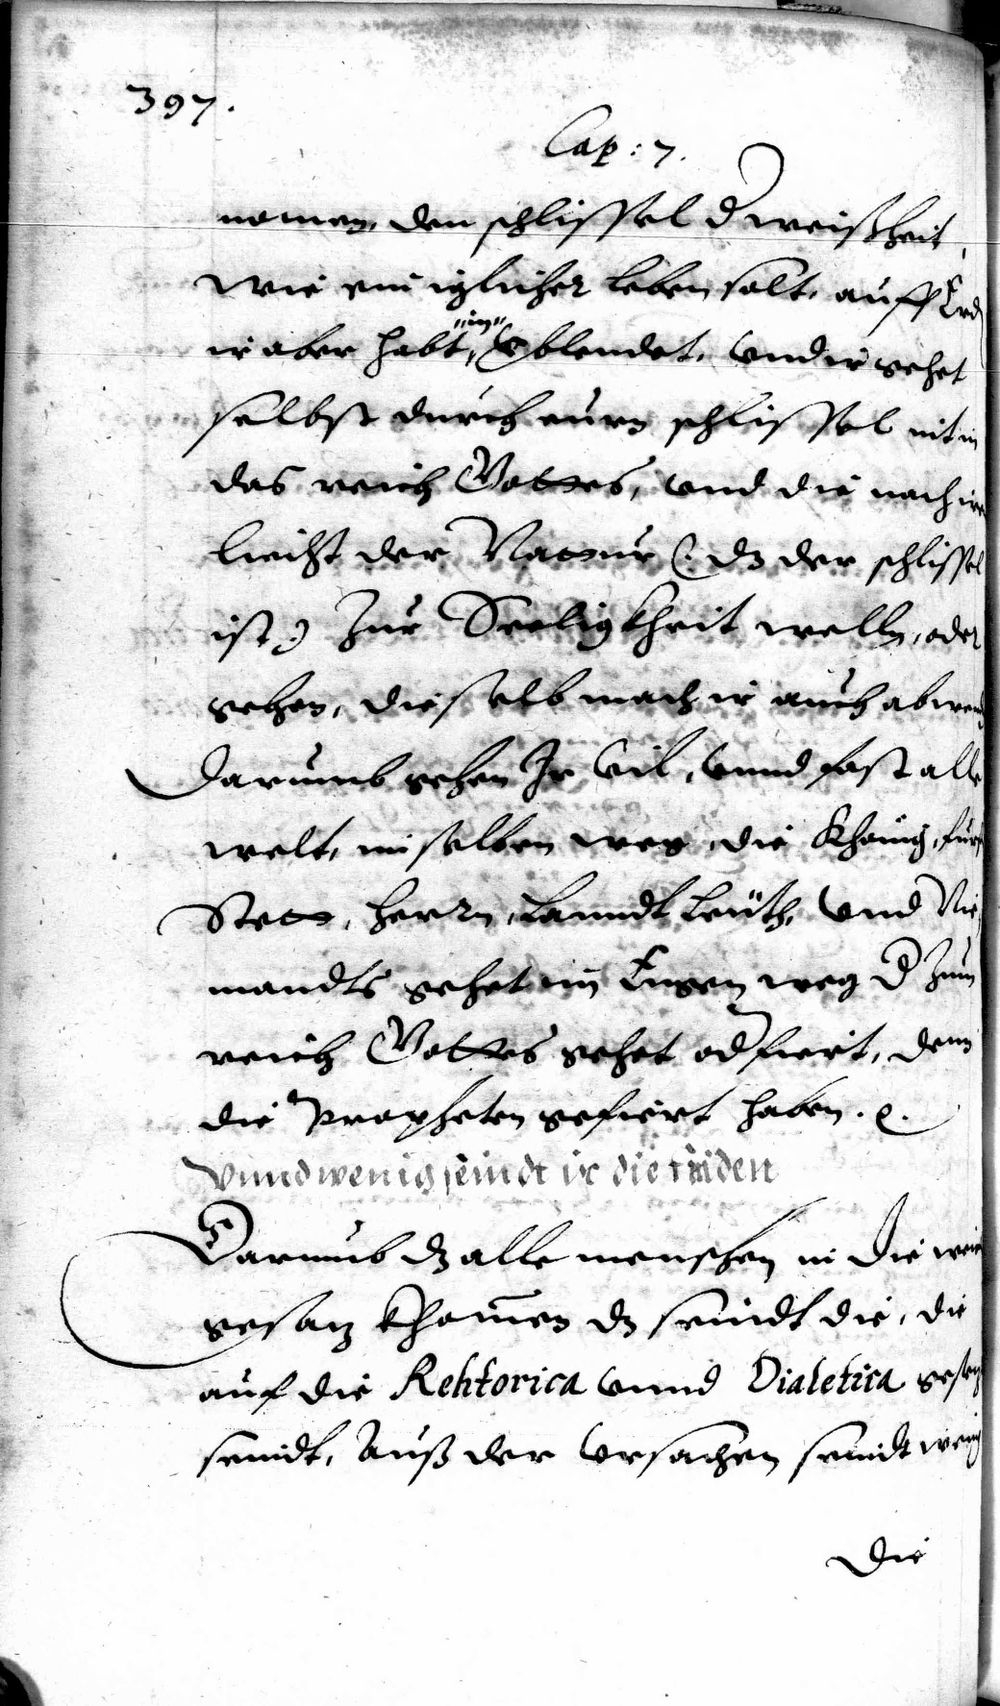 397.
Cap: 7.
nomen, den schlissel d weißheit,
wie ein iglicher leben solt, auff Erd
ir aber habt "in" verblendet, und ir gehet
selbst durch eurn schlissel nit in
das reich Gottes, und die nach irem
liecht der Nattur (: dz der schlissel
ist :) zur Seeligkheit welln, oder
gehen, dieselb mach ir auch abwend
Darumb gehen Ir vil, unnd fast alle
welt, im selben weg, die Khönig, fürst
Stett, herrn, Lanndt Leüth, und Nie,
mandts gehet im Engen weg d zum
reich Gottes gehet od fiert, denn
die Propheten gefiert haben. e.
Vnnd wenig seindt ir die finden
Darumb dz alle menschen in die weit
gesatz khomen dz seindt die, die
auf die Rehtorica unnd Dialetica gesetzt
seindt, Auß der Vrsachen seindt wenig
die